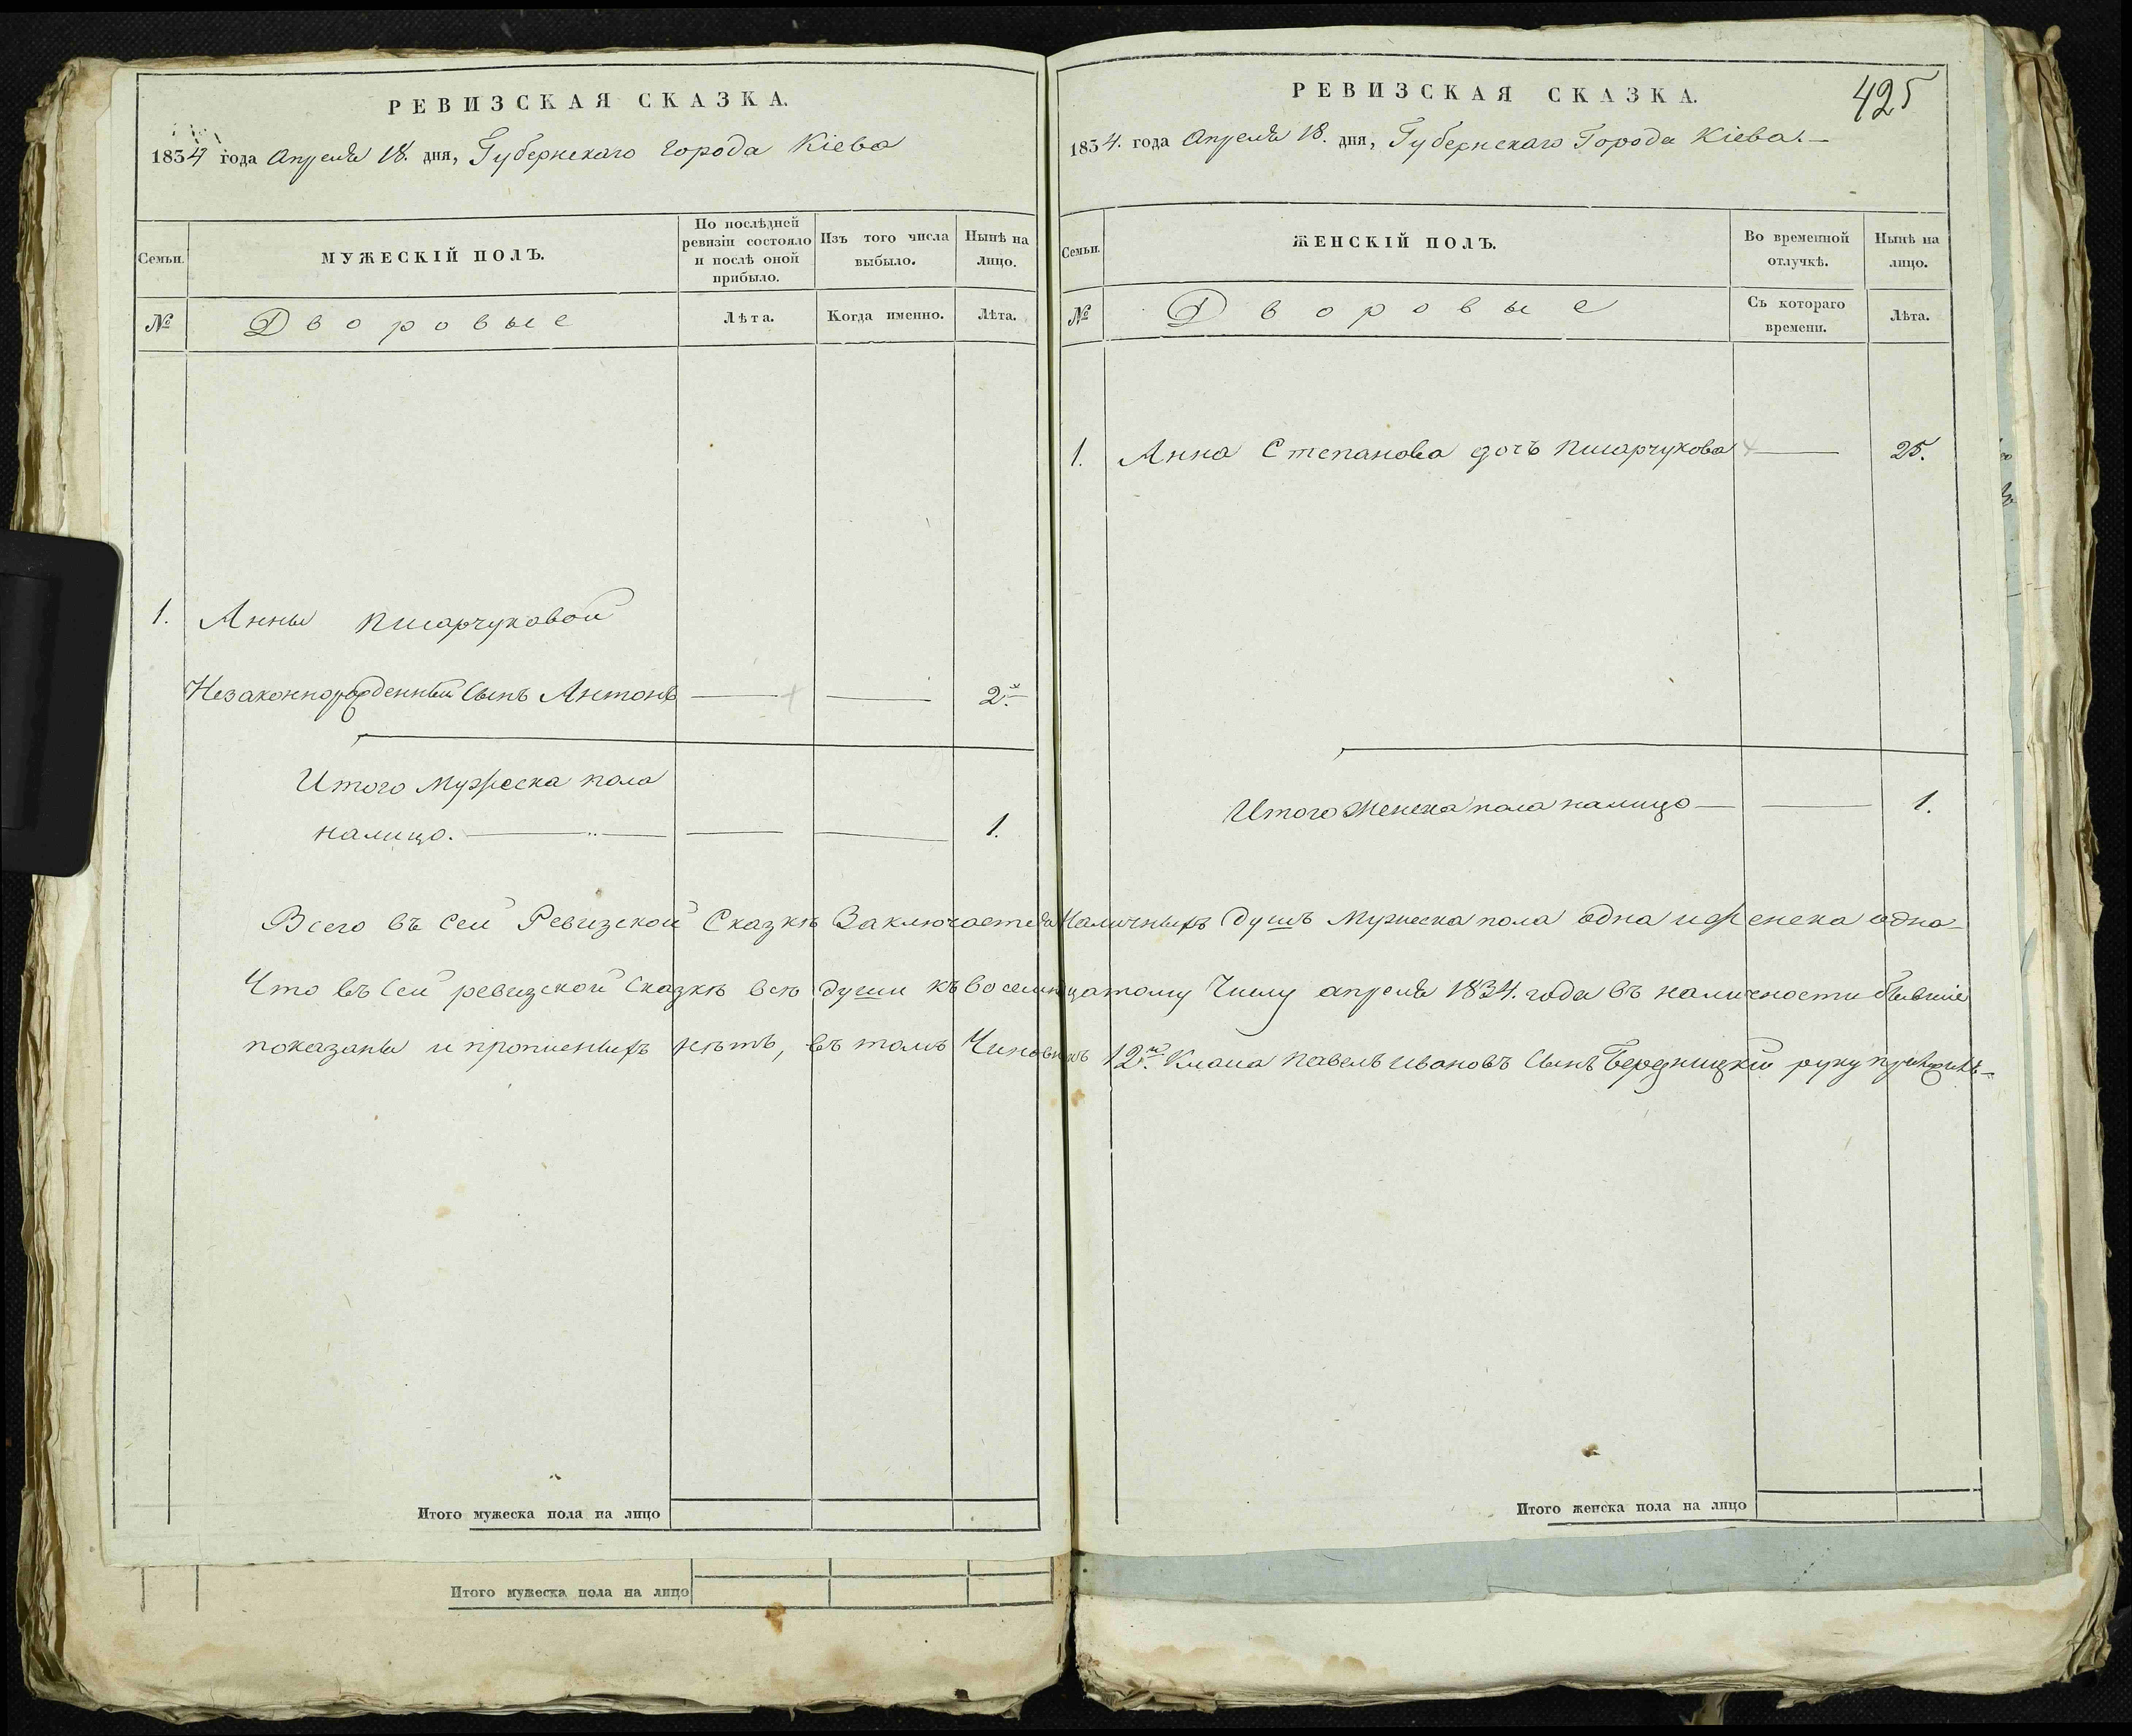 РЕВИЗСКАЯ СКАЗКА.
1834 года Апреля 18. дня, Губернскаго города Кіева
Семьи.
МУЖЕСКІЙ ПОЛЪ.
По послѣдней ревизіи состояло и послѣ оной прибыло.
Изъ того числа выбыло.
Нынѣ на лицо.
№
Дворовые
Лѣта.
Когда именно.
Лѣта.
1. Анны Писарчуковой
Незаконнорожденный Сынъ Антонъ 2.
Итого Мужеска пола
налицо. 1.
Итого мужеска пола на лицо
Итого мужеска пола на лицо
425
РЕВИЗСКАЯ СКАЗКА.
1834. года Апреля 18. дня, Губернскаго Города Кіева.
Семьи.
ЖЕНСКІЙ ПОЛЪ.
Во временной отлучкѣ.
Нынѣ на лицо.
№
Дворовые
Съ котораго времени.
Лѣта.
1. Анна Степанова дочь Писарчукова 25.
Итого Женска пола налицо 1.
Всего въ сей Ревизской Сказкѣ Заключается Наличныхъ душъ Мужеска пола одна и женска одна
Что въ сей ревизской сказкѣ всѣ души къ восемнцатому Числу апреля 1834. года въ наличности бывшие
показаны и прописныхъ нѣтъ, въ томъ Чиновникъ 12го Класа Павелъ Ивановъ Сынъ руку приложилъ
Итого женска пола на лицо